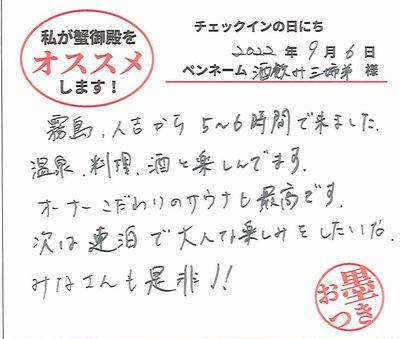 私が蟹御殿を
オススメ
します！
チェックインの日にち
2022 年 9 月 6 日
ペンネーム 酒飲み三姉弟 様
霧島、人吉から 5〜6時間で来ました。
温泉、料理、酒と楽しんでます。
オーナーこだわりのサウナも最高です。
次は連泊で大人な楽しみをしたいな。
みなさんも是非!!
お墨つき